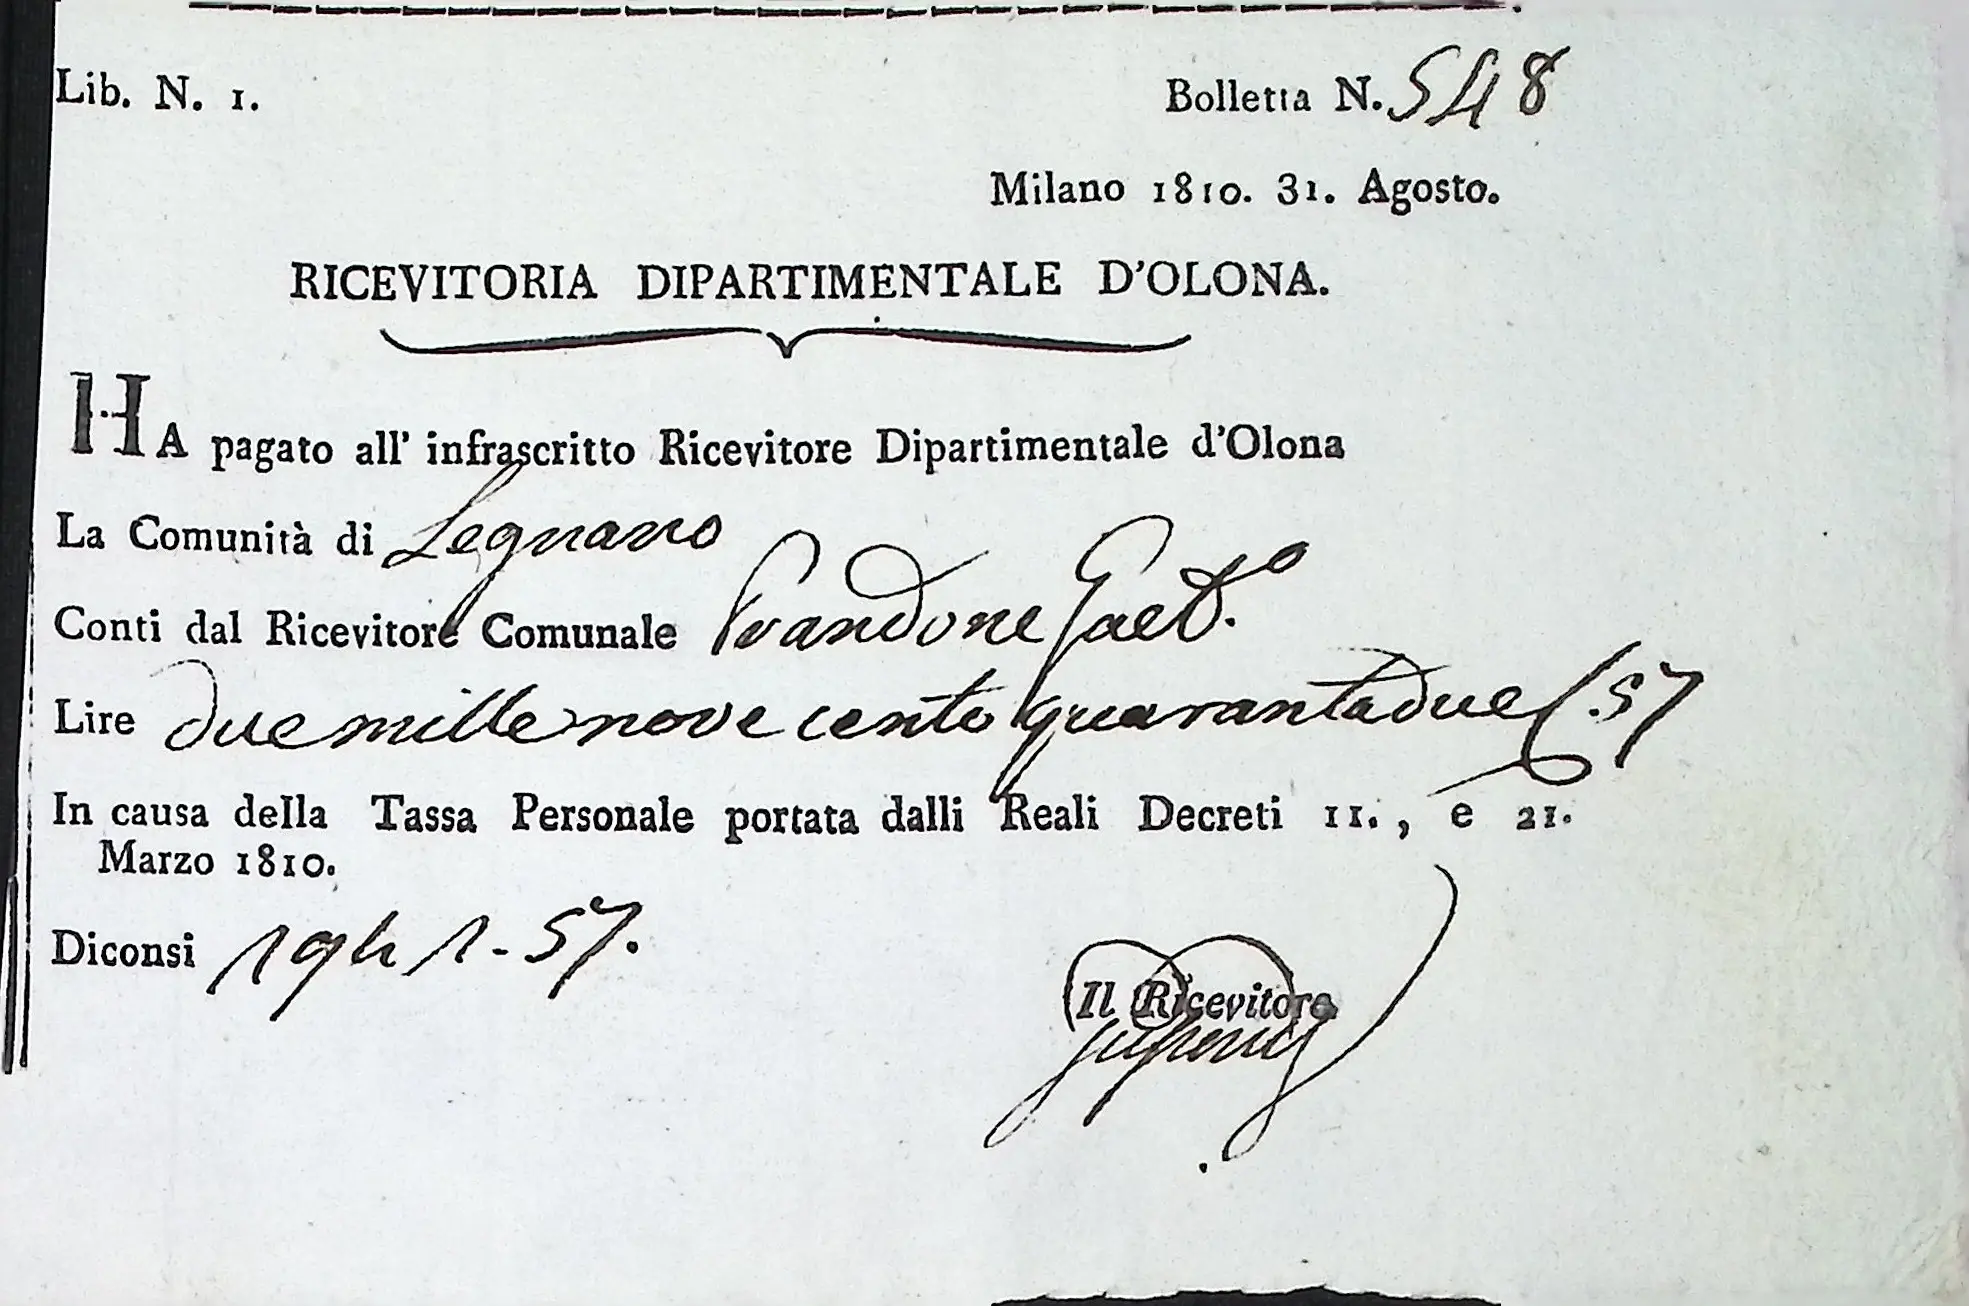 Lib. N. 1.
Bolletta N. 548
Milano 1810. 31. Agosto.
RICEVITORIA DIPARTIMENTALE D'OLONA.
HA pagato all' infrascritto Ricevitore Dipartimentale d'Olona
La Comunità di Legnano
Conti dal Ricevitore Comunale Prandone Gaet.o
Lire due mille nove cento quaranta due 57
In causa della Tassa Personale portata dalli Reali Decreti 11., e 21.
Marzo 1810.
Diconsi 57.
Il Ricevitore